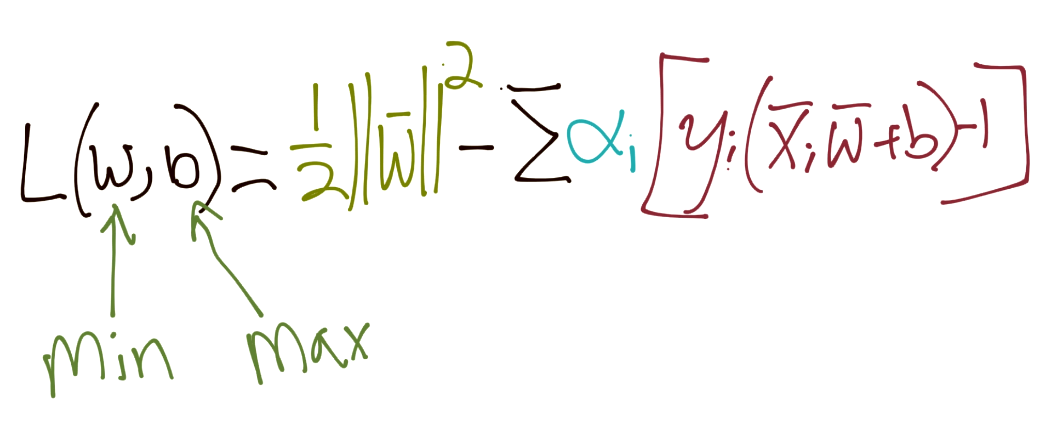 L(w,b) = 1/2 ||w̄||² - Σ αᵢ [yᵢ(x̄ᵢ w̄ + b) - 1]
min max